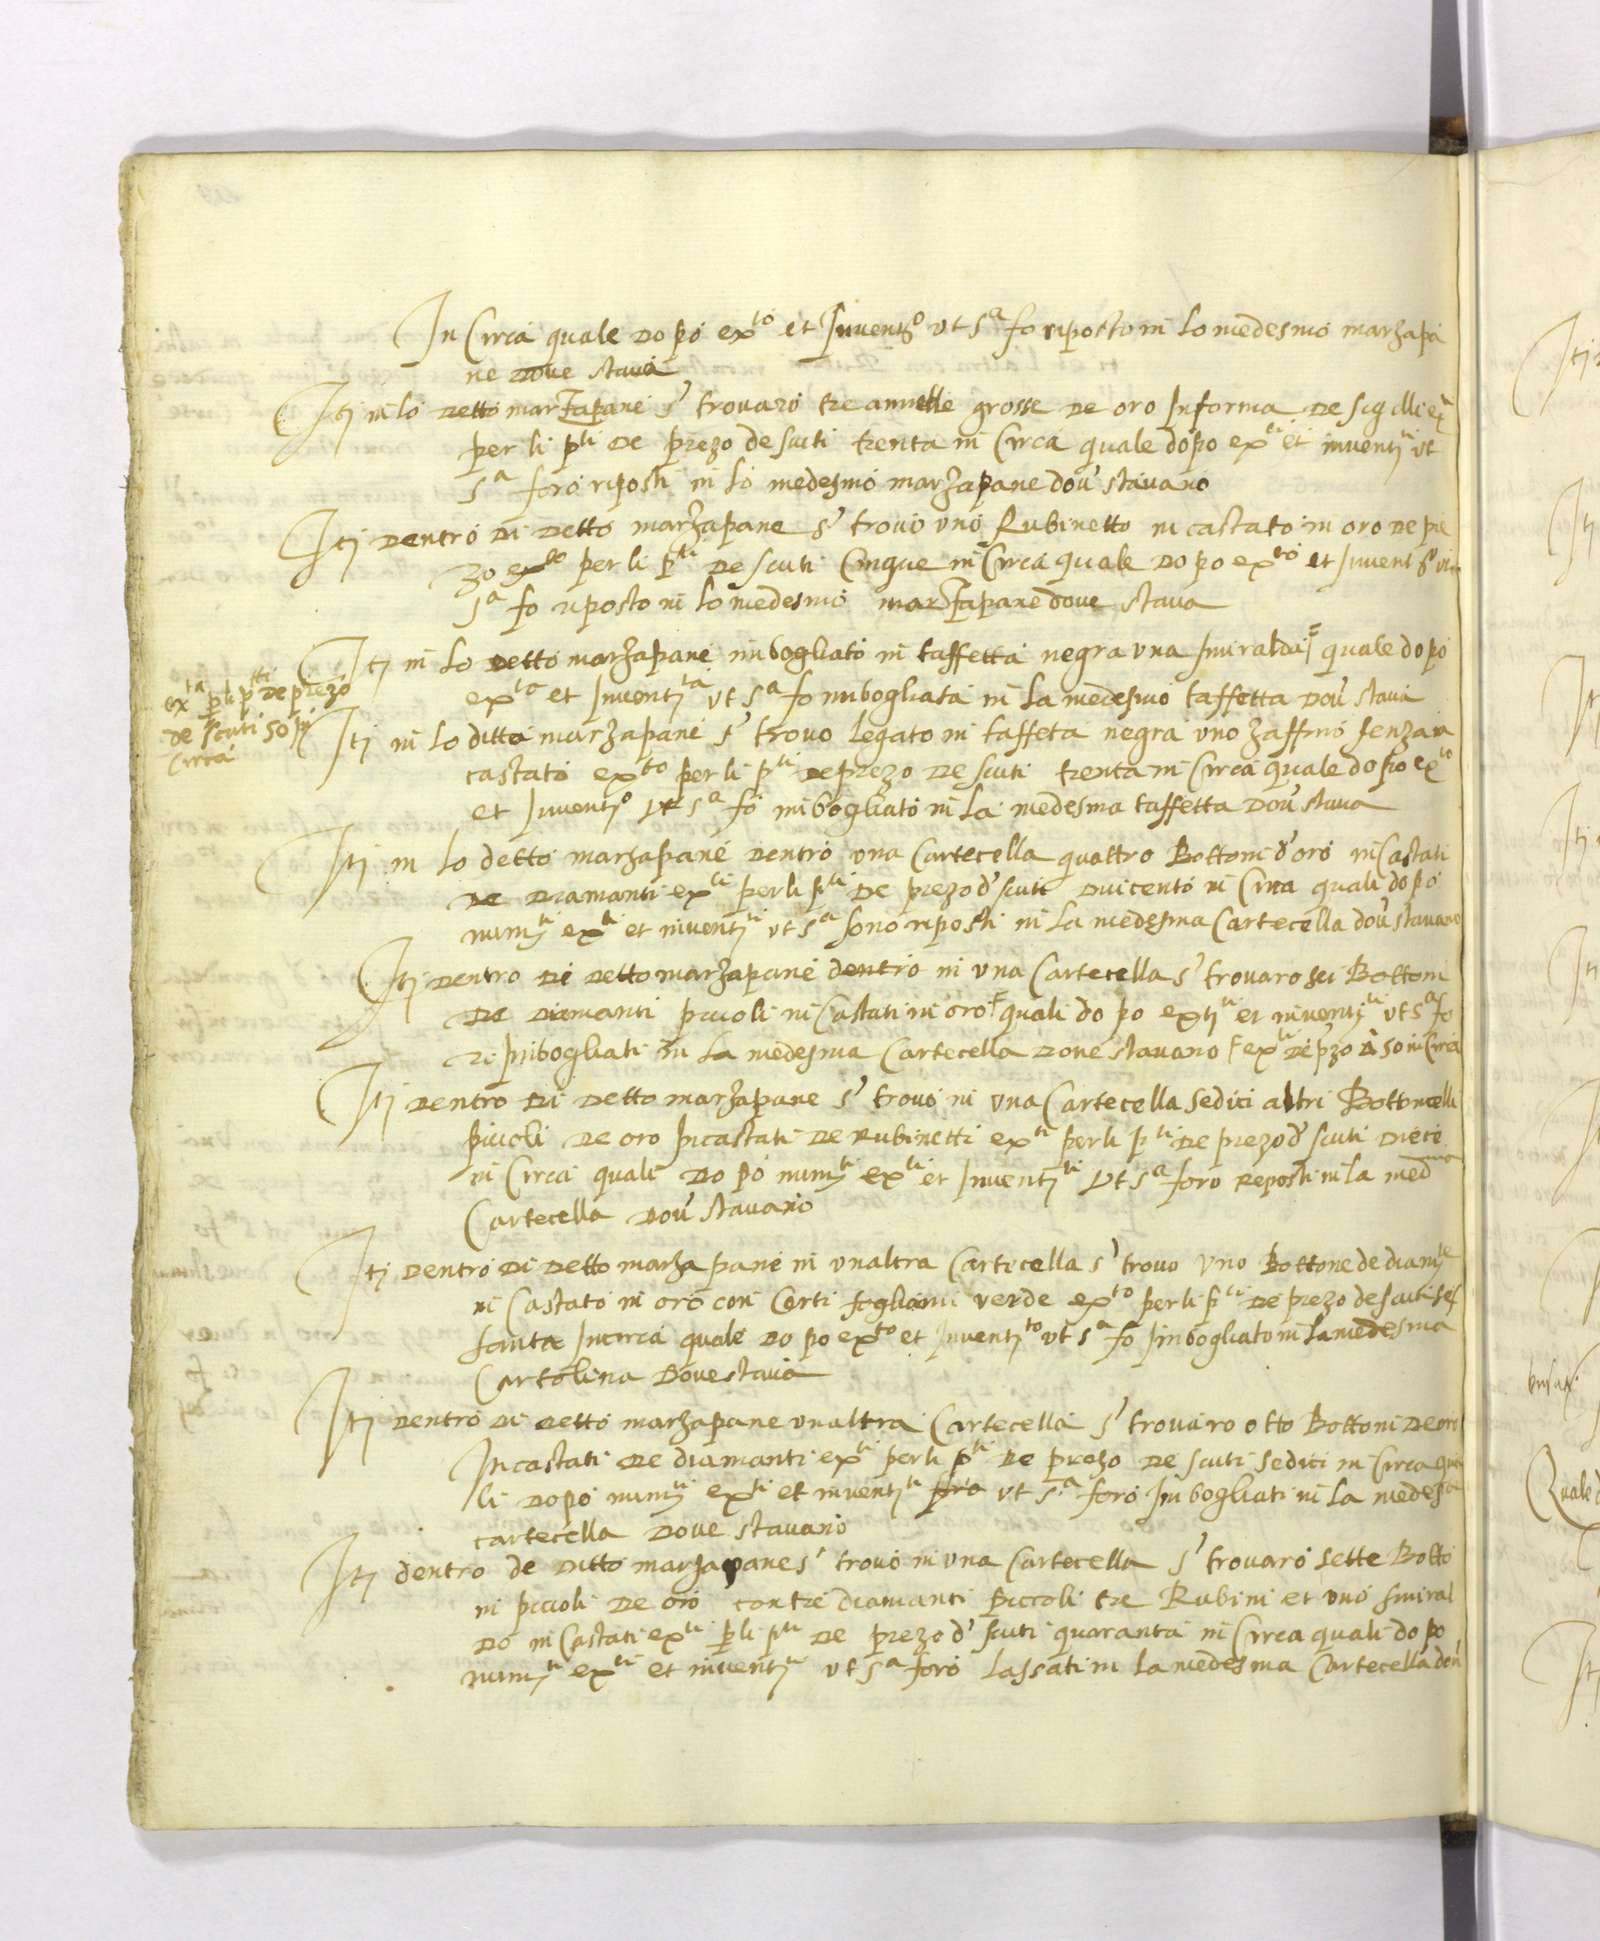 In Circa quale dopo ex.to et Inventi.o ut s.a fo riposto in lo medesmo marzapa
ne dove stava
Itj in lo detto marzapane s' trovaro tre annelle grosse de oro In forma de sigilli
per li p.ti de prezo de scuti trenta in Circa quale dopo ex.ti et inventi.ti ut
s.a foro riposti in lo medesmo marzapane dov' stavano
Itj dentro di detto marzapane s' trovo uno Rubinetto in castato in oro de pre
zo ex.to per li p.ti de scuti Cinque in Circa quale dopo ex.to et Invent.o ut
s.a fo riposto in lo medesmo marzapane dove stava
Itj in lo detto marzapane imbogliato in taffetta negra una smiralda quale dopo
ex.ta et Inventi.ta ut s.a fo imbogliata in la medesmo taffetta dov' stava
ex.ta p li p.tti de prezo
de scuti 50 in
circa
Itj in lo ditto marzapane s' trovo legato in taffeta negra uno zaffino senza in
castato ex.to per li p.ti de prezo de scuti trenta in Circa quale dopo ex.to
et Inventi.o ut s.a fo imbogliato in la medesma taffetta dov' stava
Itj in lo detto marzapane dentro una Cartecella quattro Bottoni d' oro in Castati
de diamanti ex.ti per li p.ti de prezo d' scuti duicento in Circa quali dopo
num.ti ex.ti et inventi.ti ut s.a sono riposti in la medesma Cartecella dov' stavano
Itj dentro di detto marzapane dentro in una Cartecella s' trovaro sei Bottoni
de diamanti piccoli in Castati in oro quali dopo ex.ti et inventi.ti ut s.a fo
ri imbogliati in la medesma Cartecella dove stavano ex.ti de p'zo d' 50 in Circa
Itj dentro di detto marzapane s' trovo in una Cartecella sedici altri Bottoncelli
piccoli de oro Incastati de Rubinetti ex.ti per li p.ti de prezo d' scuti diece
in Circa quali dopo num.ti ex.ti et Inventi.ti ut s.a foro reposti in la med.ma
Cartecella dov' stavano
Itj dentro di detto marzapane in un altra Cartecella s' trovo uno Bottone de diam.te
in Castato in oro con Certi fogliami verde ex.to per li p.ti de prezo de scuti ses
santa In circa quale dopo ex.to et Inventi.to ut s.a fo Imbogliato in la medesma
Cartolina dove stava
Itj dentro di detto marzapane un altra Cartecella s' trovaro otto Bottoni de oro
Incastati de diamanti ex.ti per li p.ti de prezo de scuti sedici in Circa qua
li dopo num.ti ex.ti et inventi.ti pro ut s.a foro Imbogliati in la medesa
cartecella dove stavano
Itj dentro de ditto marzapane s' trovo in una Cartecella s' trovaro sette Botto
ni piccoli de oro con tre diamanti piccoli tre Rubini et uno smiral
do in Castati ex.ti p li p.ti de prezo d' scuti quaranta in Circa quali dopo
num.ti ex.ti et inventi.ti ut s.a foro lassati in la medesma Cartecella dov'